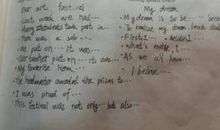 Our art festival
Last week we had...
Many students took part in...
There was a solo...
We put on... It was...
Our teacher put on... It was...
My favorite item...
The headmaster awarded the prizes to...
I was proud of...
This festival was not only... but also...
My dream
My dream is to be... because
To realize my dream, I must study
First, I... Besides, I
What's more, I...
As we all know...
I believe...